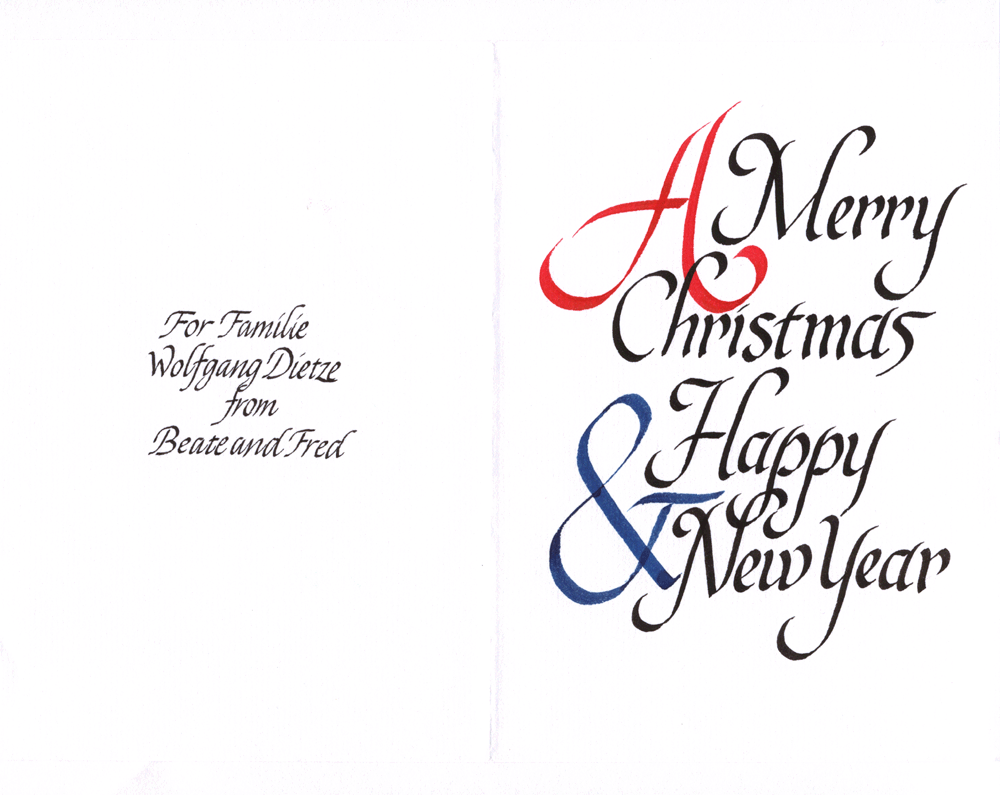 For Familie
Wolfgang Dietze
from
Beate and Fred
A Merry
Christmas
& Happy
New Year